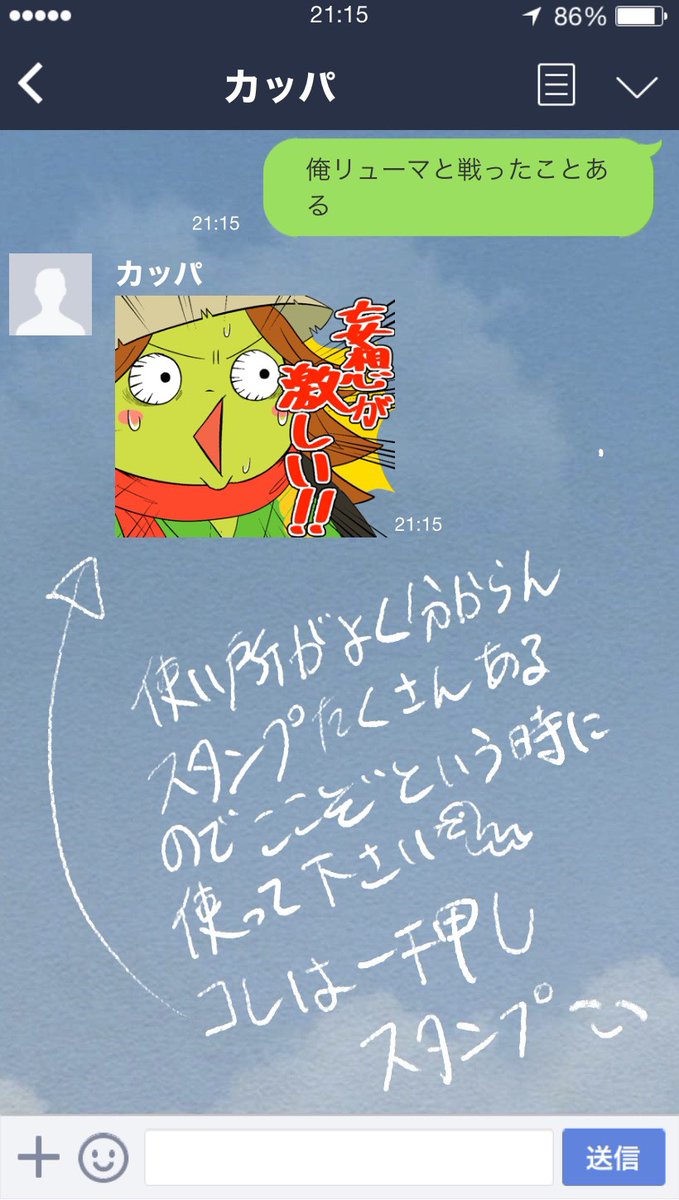 21:15
86%
カッパ
俺リューマと戦ったことあ
る
21:15
カッパ
妄想が
激しい!!
21:15
使い所がよく分からん
スタンプたくさんある
のでここぞという時に
使って下さい
コレは一押し
スタンプ
送信